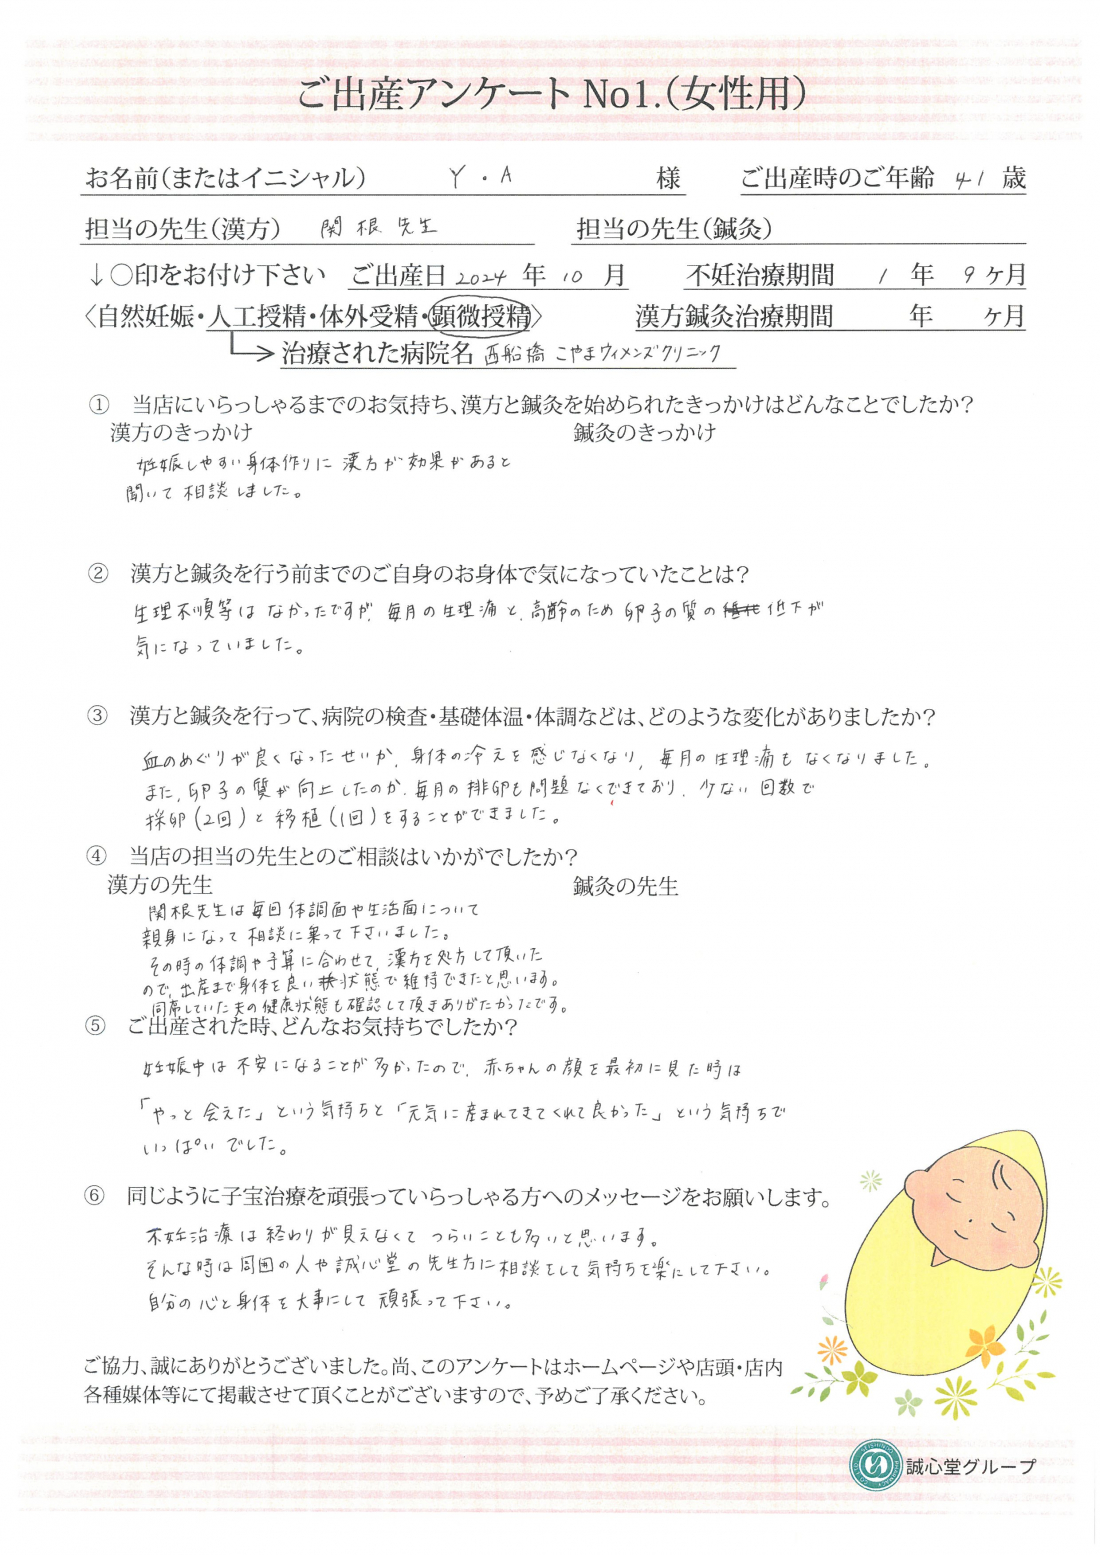 ご出産アンケート No1.（女性用）
お名前（またはイニシャル） Y・A 様 ご出産時のご年齢 41 歳
担当の先生（漢方） 関根先生 担当の先生（鍼灸）
↓○印をお付け下さい ご出産日 2024 年 10 月 不妊治療期間 1 年 9 ヶ月
〈自然妊娠・人工授精・体外受精・顕微授精〉 漢方鍼灸治療期間 年 ヶ月
治療された病院名 西船橋 こやまウィメンズクリニック
① 当店にいらっしゃるまでのお気持ち、漢方と鍼灸を始められたきっかけはどんなことでしたか？
漢方のきっかけ 鍼灸のきっかけ
妊娠しやすい身体作りに漢方が効果があると
聞いて相談しました。
② 漢方と鍼灸を行う前までのご自身のお身体で気になっていたことは？
生理不順等はなかったですが、毎月の生理痛と、高齢のため卵子の質の低下が
気になっていました。
③ 漢方と鍼灸を行って、病院の検査・基礎体温・体調などは、どのような変化がありましたか？
血のめぐりが良くなったせいか、身体の冷えを感じなくなり、毎月の生理痛もなくなりました。
また、卵子の質が向上したのか、毎月の排卵も問題なくできており、少ない回数で
採卵（2回）と移植（1回）をすることができました。
④ 当店の担当の先生とのご相談はいかがでしたか？
漢方の先生 鍼灸の先生
関根先生は毎回体調面や生活面について
親身になって相談に乗って下さいました。
その時の体調や予算に合わせて、漢方を処方して頂いた
ので、出産まで身体を良い状態で維持できたと思います。
同席していた夫の健康状態も確認して頂きありがたかったです。
⑤ ご出産された時、どんなお気持ちでしたか？
妊娠中は不安になることが多かったので、赤ちゃんの顔を最初に見た時は
「やっと会えた」という気持ちと「元気に産まれてきてくれて良かった」という気持ちで
いっぱいでした。
⑥ 同じように子宝治療を頑張っていらっしゃる方へのメッセージをお願いします。
不妊治療は終わりが見えなくてつらいことも多いと思います。
そんな時は周囲の人や誠心堂の先生方に相談をして気持ちを楽にして下さい。
自分の心と身体を大事にして頑張って下さい。
ご協力、誠にありがとうございました。尚、このアンケートはホームページや店頭・店内
各種媒体等にて掲載させて頂くことがございますので、予めご了承ください。
誠心堂グループ